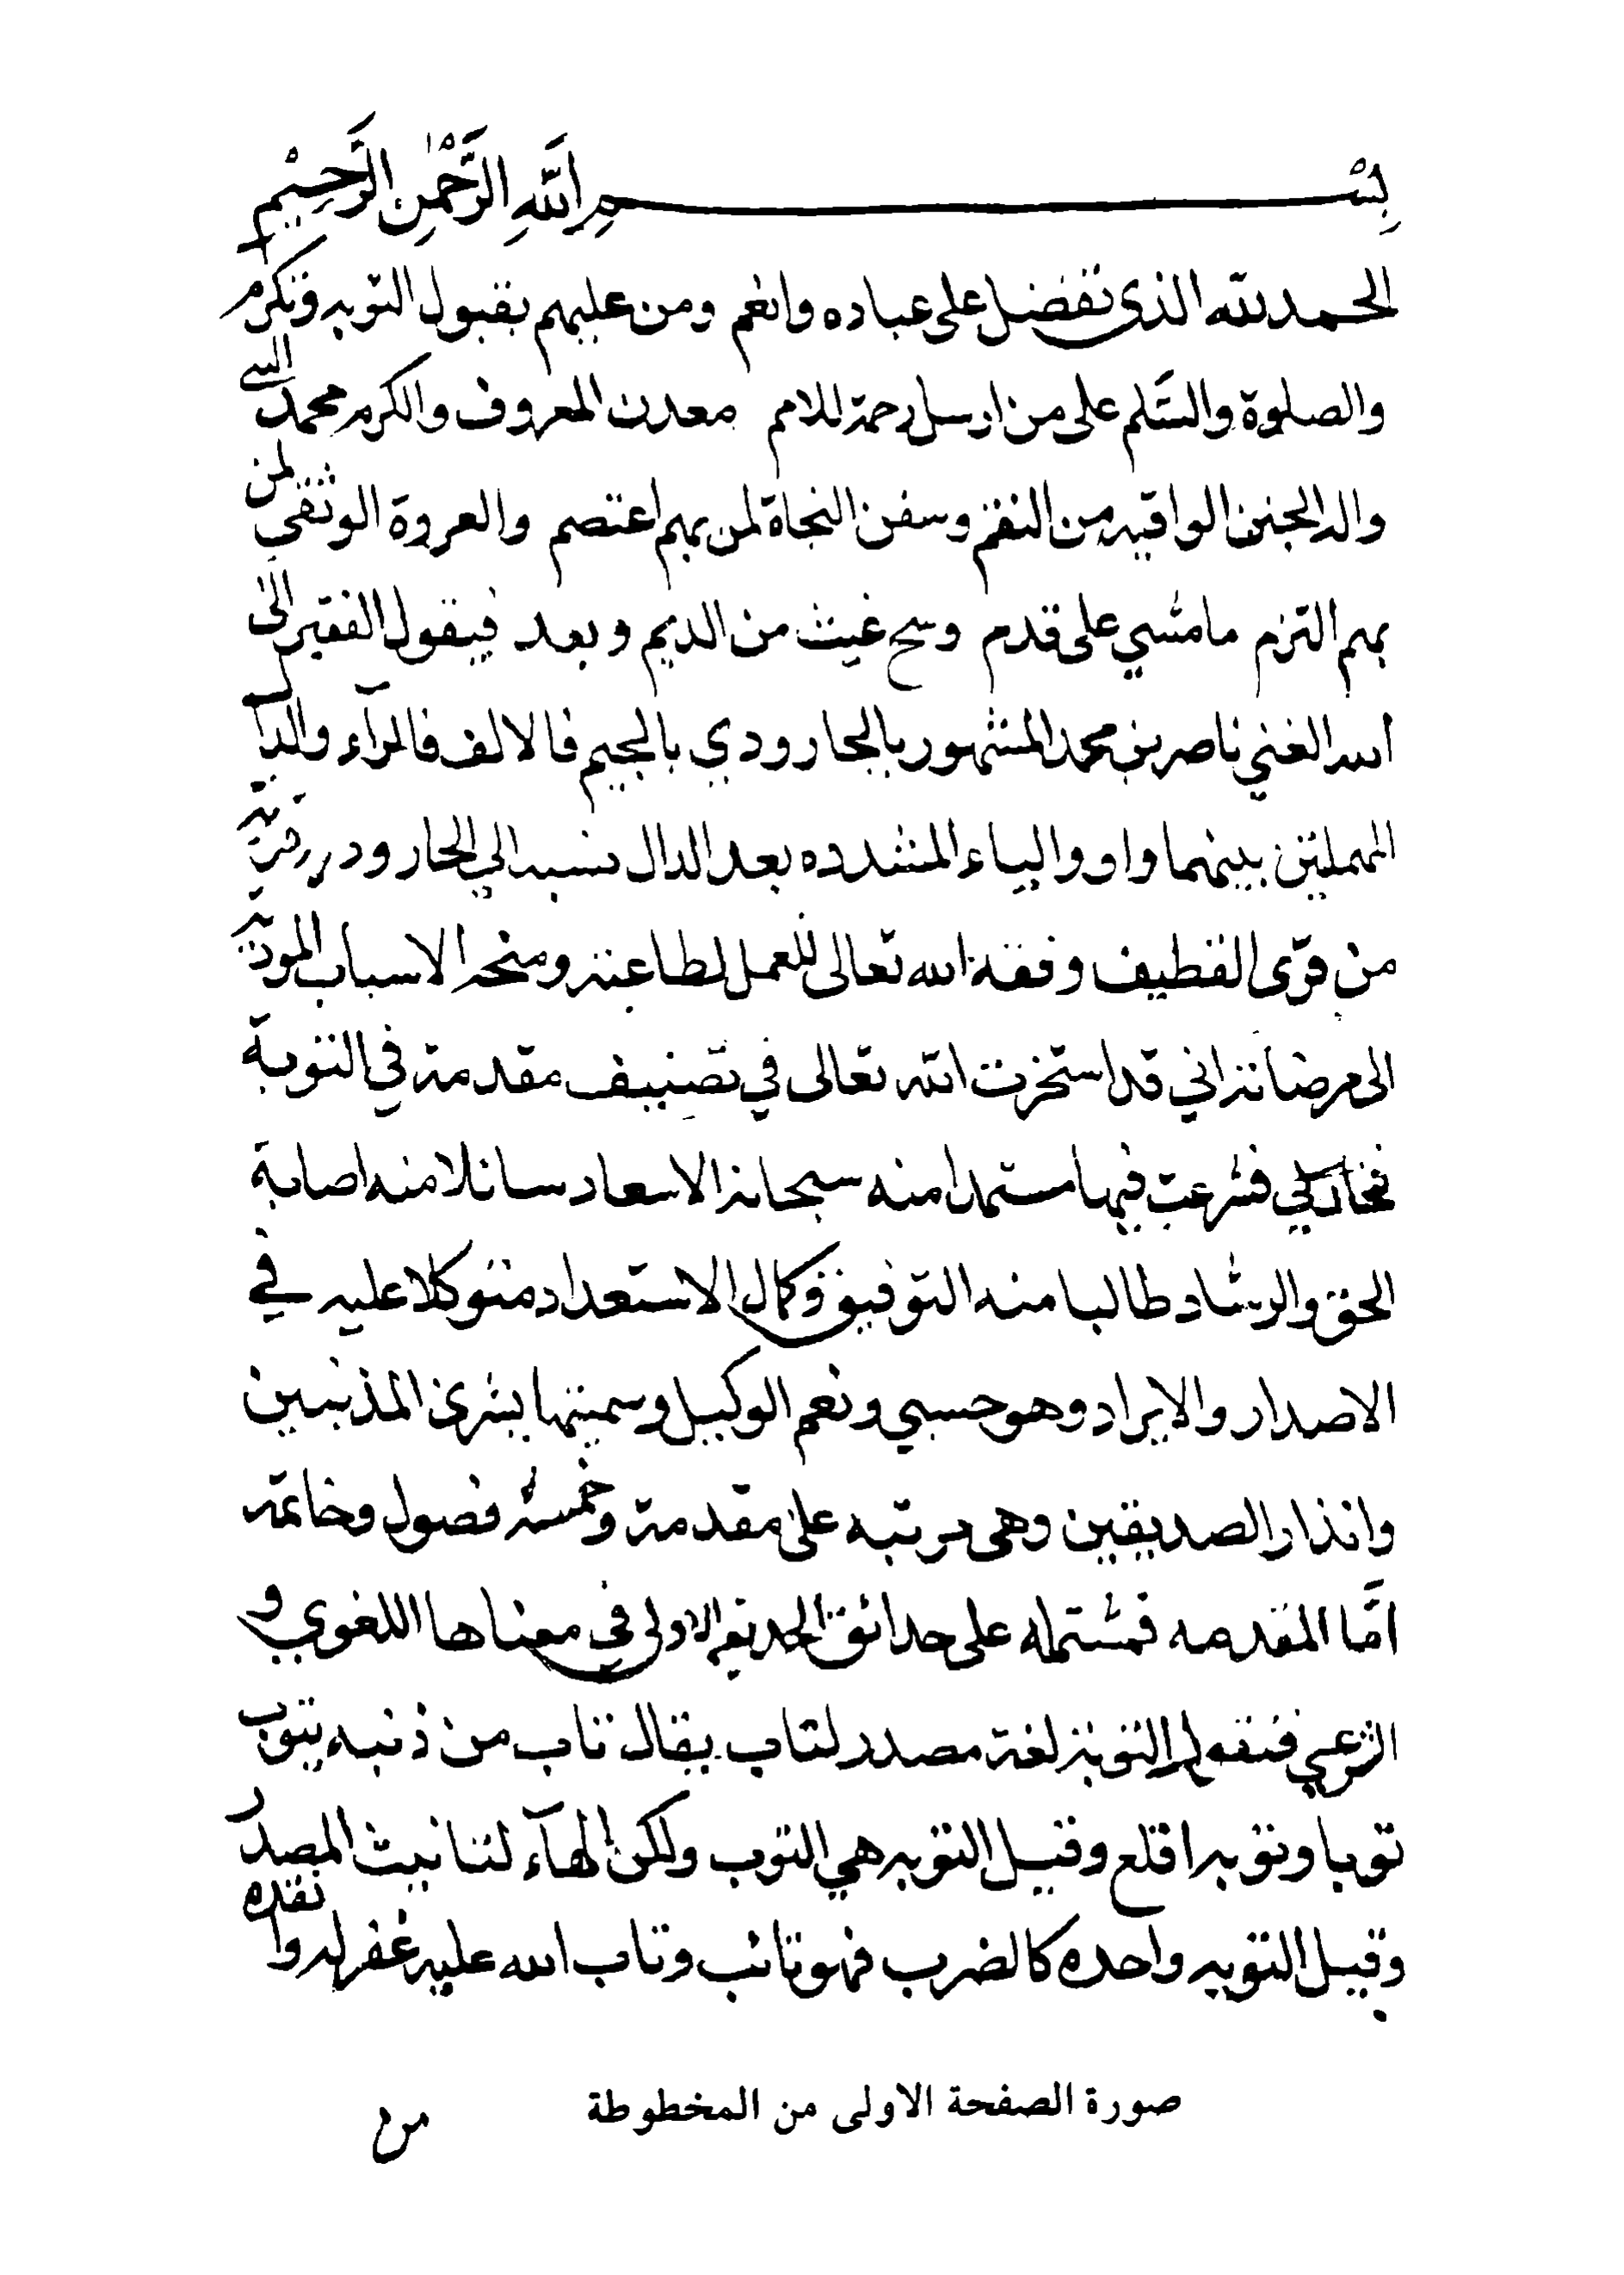 بسم الله الرحمن الرحيم
الحمد لله الذي تفضل على عباده وانعم ومن عليهم بقبول التوبه وتكرم
والصلوة والسَّلم على من ارسل رحمة للامم معدن المعروف والكرم محمد النبي
واله الجنن الواقيه من النقم وسفن النجاة لمن بهم اعتصم والعروة الوثقى لمن
بهم التزم ما مشي على قدم وسح غيث من الديم وبعد فيقول الفقير الى
الله الغني ناصر بن محمد المشهور بالجارودي بالجيم فالالف فالرآء والدال
المهملتين بينهما واو والياء المشدده بعد الدال نسبه الي الجارود قرية
من قرى القطيف وفقه الله تعالى للعمل لطاعته ومنحه الاسباب المودية
الى مرضاته اني قد استخرت الله تعالى في تصنيف مقدمة في التوبة
فخار لي فشرعت فيها مستمدا منه سبحانه الاسعاد سائلا منه اصابة
الحق والرشاد طالبا منه التوفيق وكمال الاستعداد متوكلا عليه في
الاصدار والايراد وهو حسبي ونعم الوكيل وسميتها بشرى المذنبين
وانذار الصديقين وهى مرتبه على مقدمة وخمسة فصول وخاتمة
امَّا المقدمه فمشتمله على حدائق الحديقه الاولى في معناها اللغوي و
الشرعي فنقول التوبة لغة مصدر لتاب يقال تاب من ذنبه يتوب
توبا وتوبه اقلع وقيل التوبه هي التوب ولكن الهآء لتانيث المصدر
وقيل التوبه واحده كالضرب فهو تائب وتاب الله عليه غفر له وانقذه
من
صورة الصفحة الاولى من المخطوطة